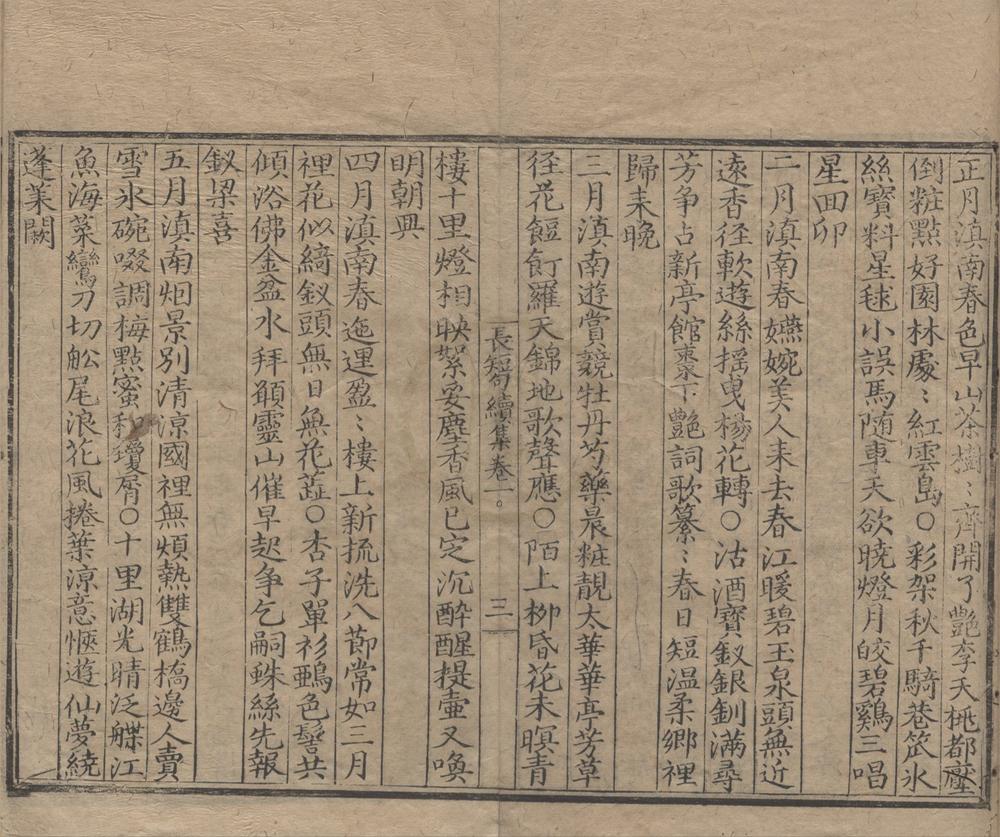 正月滇南春色早山茶樹〻齊開了艷李夭桃都壓
倒粧點好園林處〻紅雲島〇彩架秋千騎巷笟氷
絲寶料星毬小誤馬随車天欲曉燈月皎碧鷄三唱
星回卯
二月滇南春嬿婉美人来去春江暖碧玉泉頭無近
遠香徑軟遊絲揺曳楊花轉〇沽酒寳釵銀釧满尋
芳争占新亭館棗下艷詞歌纂〻春日短温柔鄉裡
歸来晚
三月滇南遊賞競牡丹芍藥晨粧靚太華華亭芳草
径花餖飣羅天錦地歌聲應〇陌上栁昏花未暝青
長短句續集卷一。
三
樓十里燈相映絮妥塵香風已定沉醉醒提壷又喚
明朝興
四月滇南春迤逦盈〻樓上新梳洗八節常如三月
裡花似綺釵頭無日無花蕋〇杏子單衫鵶色髻共
傾浴佛金盆水拜願靈山催早起争乞嗣蛛絲先報
釵梁喜
五月滇南烟景别清凉國裡無煩熱雙鶴橋邊人賣
雪氷碗啜調梅點蜜和瓊屑〇十里湖光晴泛艓江
魚海菜鸞刀切舩尾浪花風捲葉凉意愜遊仙夢繞
蓬莱闕